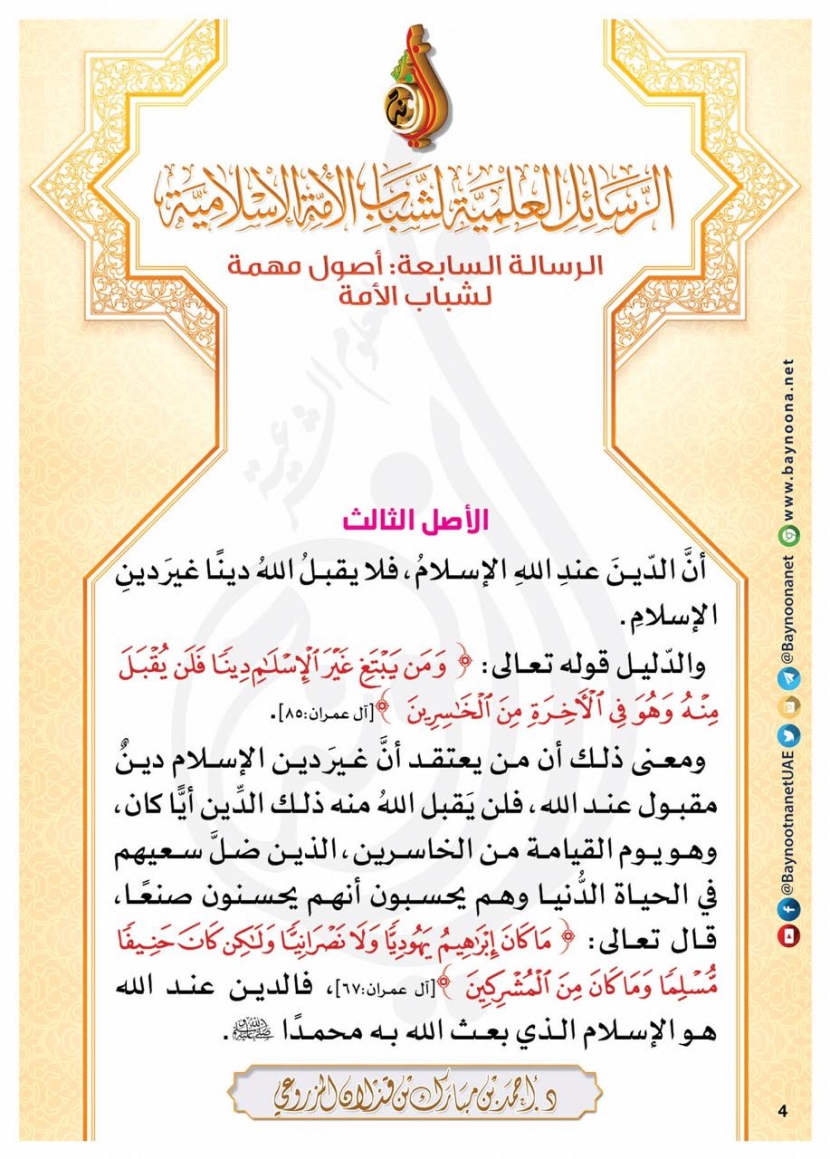 الرَّسَائِلُ العِلْمِيَّةُ لِشَبَابِ الأُمَّةِ الإِسْلَامِيَّةِ
الرسالة السابعة: أصول مهمة
لشباب الأمة
الأصل الثالث
أنَّ الدّينَ عندِ اللهِ الإسلامُ، فلا يقبلُ اللهُ دينًا غيرَ دينِ
الإسلامِ.
والدّليل قوله تعالى: ﴿ وَمَن يَبْتَغِ غَيْرَ ٱلْإِسْلَٰمِ دِينًا فَلَن يُقْبَلَ
مِنْهُ وَهُوَ فِي ٱلْآخِرَةِ مِنَ ٱلْخَٰسِرِينَ ﴾[آل عمران:٨٥].
ومعنى ذلك أن من يعتقد أنَّ غيرَ دين الإسلام دينٌ
مقبول عند الله، فلن يَقبل اللهُ منه ذلك الدِّين أيًّا كان،
وهو يوم القيامة من الخاسرين، الذين ضلَّ سعيهم
في الحياة الدُّنيا وهم يحسبون أنهم يحسنون صنعًا،
قال تعالى: ﴿ مَا كَانَ إِبْرَٰهِيمُ يَهُودِيًّا وَلَا نَصْرَانِيًّا وَلَٰكِن كَانَ حَنِيفًا
مُّسْلِمًا وَمَا كَانَ مِنَ ٱلْمُشْرِكِينَ ﴾[آل عمران:٦٧]، فالدين عند الله
هو الإسلام الذي بعث الله به محمدًا ﷺ.
د. أحمد بن مبارك بن قذلان المزروعي
4
www.baynoona.net
@Baynoonanet
@BaynootnanetUAE
للعلوم الشرعية